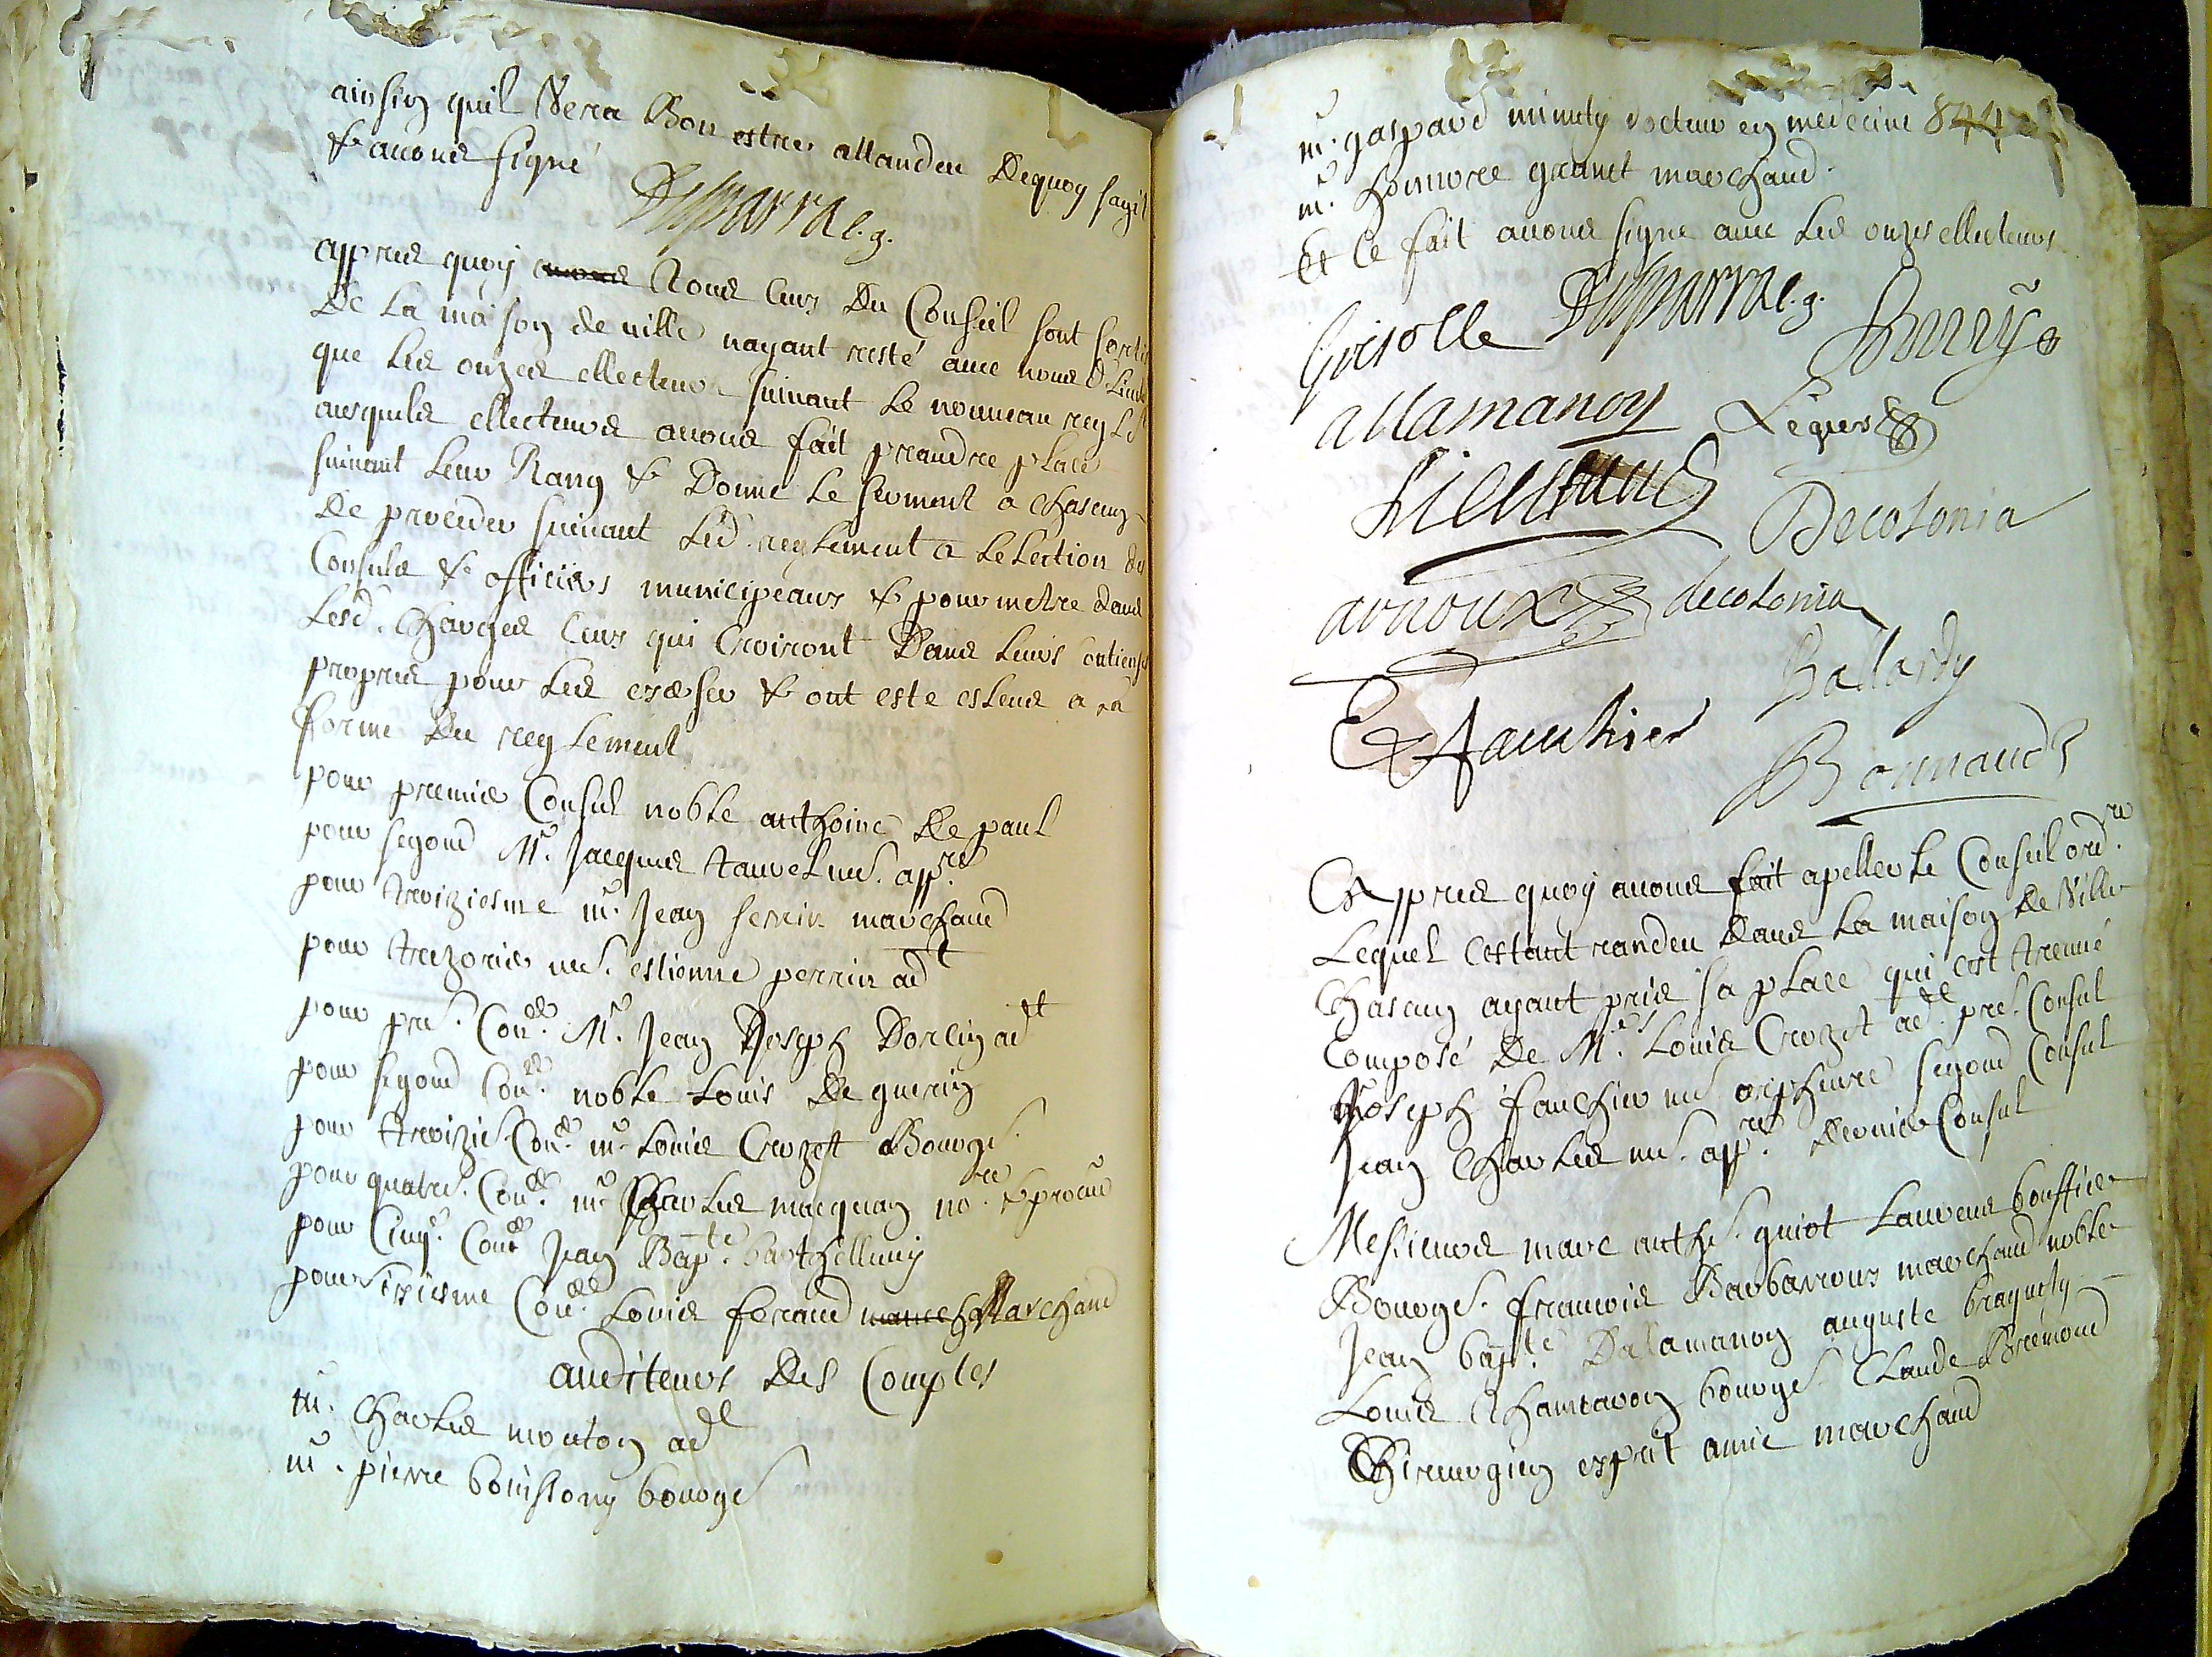 ainsin quil Sera Bon estre attandeu Dequoy sagit
& auons signé
Desparra l. g.
appres quoy tous ceux Du Conseil sont sortis
De La maison de uille nayant resté auec nous
que Les onzes ellecteurs suiuant Le nouueau regl
ausquels ellecteurs auons fait preandre place
suiuant Leur Rang & Donné Le serment a chascun
De proceder suiuant Led. reglement a Lelection des
Consuls & officiers municipeaux & pour metre dans
Lesd. charges ceux qui croiront Dans Leurs
propres pour Les exerser & ont este esleus a La
forme Du reglement
pour premier Consul noble anthoine De paul
pour segond Mr. Jacques tauvel me. appre
pour troiziesme mr. Jean serrin marchand
pour trezorier me. estienne perrin adt
pour pre. Coner. Mr. Jean Joseph Dorcin adt
pour segond Coner. noble Louis De guerin
pour troizie. Coner. mr. Louis Crozet Bourge.
pour quatre. Coner. mr. Charles macquan nore. & procur
pour Cinq. Coner. Jean Bapte. barthellemy
pour sixiesme Coner. Louis feraud Marchand
auditeurs Des Comptes
mr. Charles mouton ad
mr. pierre bouissony bourge
mr. gaspard minuty docteur en medecine 844
mr. honnoré granet marchand.
Et Ce fait auons signe auec Les onzes ellecteurs
Grisolle Desparra l. g.
allamanon
Decolonia
arnoux decolonia
Gallardy
E fauchier
Bonnaud
Et appres quoy auons fait apeller le Conseil ordre.
Lequel cestant randeu Dans La maison De Ville
Chascun ayant pris sa place qui cest treuué
Composé De Mrs. Louis Crozet ad. pre. Consul
Joseph fauchier me orphevre segond Consul
Jean Charles me. appre. Dernier Consul
Messieurs marc anthe. guiot Laurens bouffier
Bourge. francois Barbarroux marchand noble
Jean bapte Dalamanon auguste braquety
Louis Chantaron bourge. Claude Bremond
Chirurgien esprit amic marchand